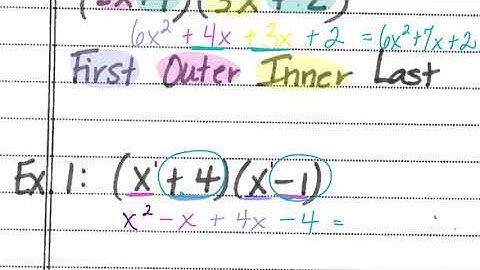 (2x+1)(3x+2)
6x² + 4x + 3x + 2 = 6x²+7x+2
First Outer Inner Last
Ex. 1: (x + 4)(x - 1)
x² - x + 4x - 4 =